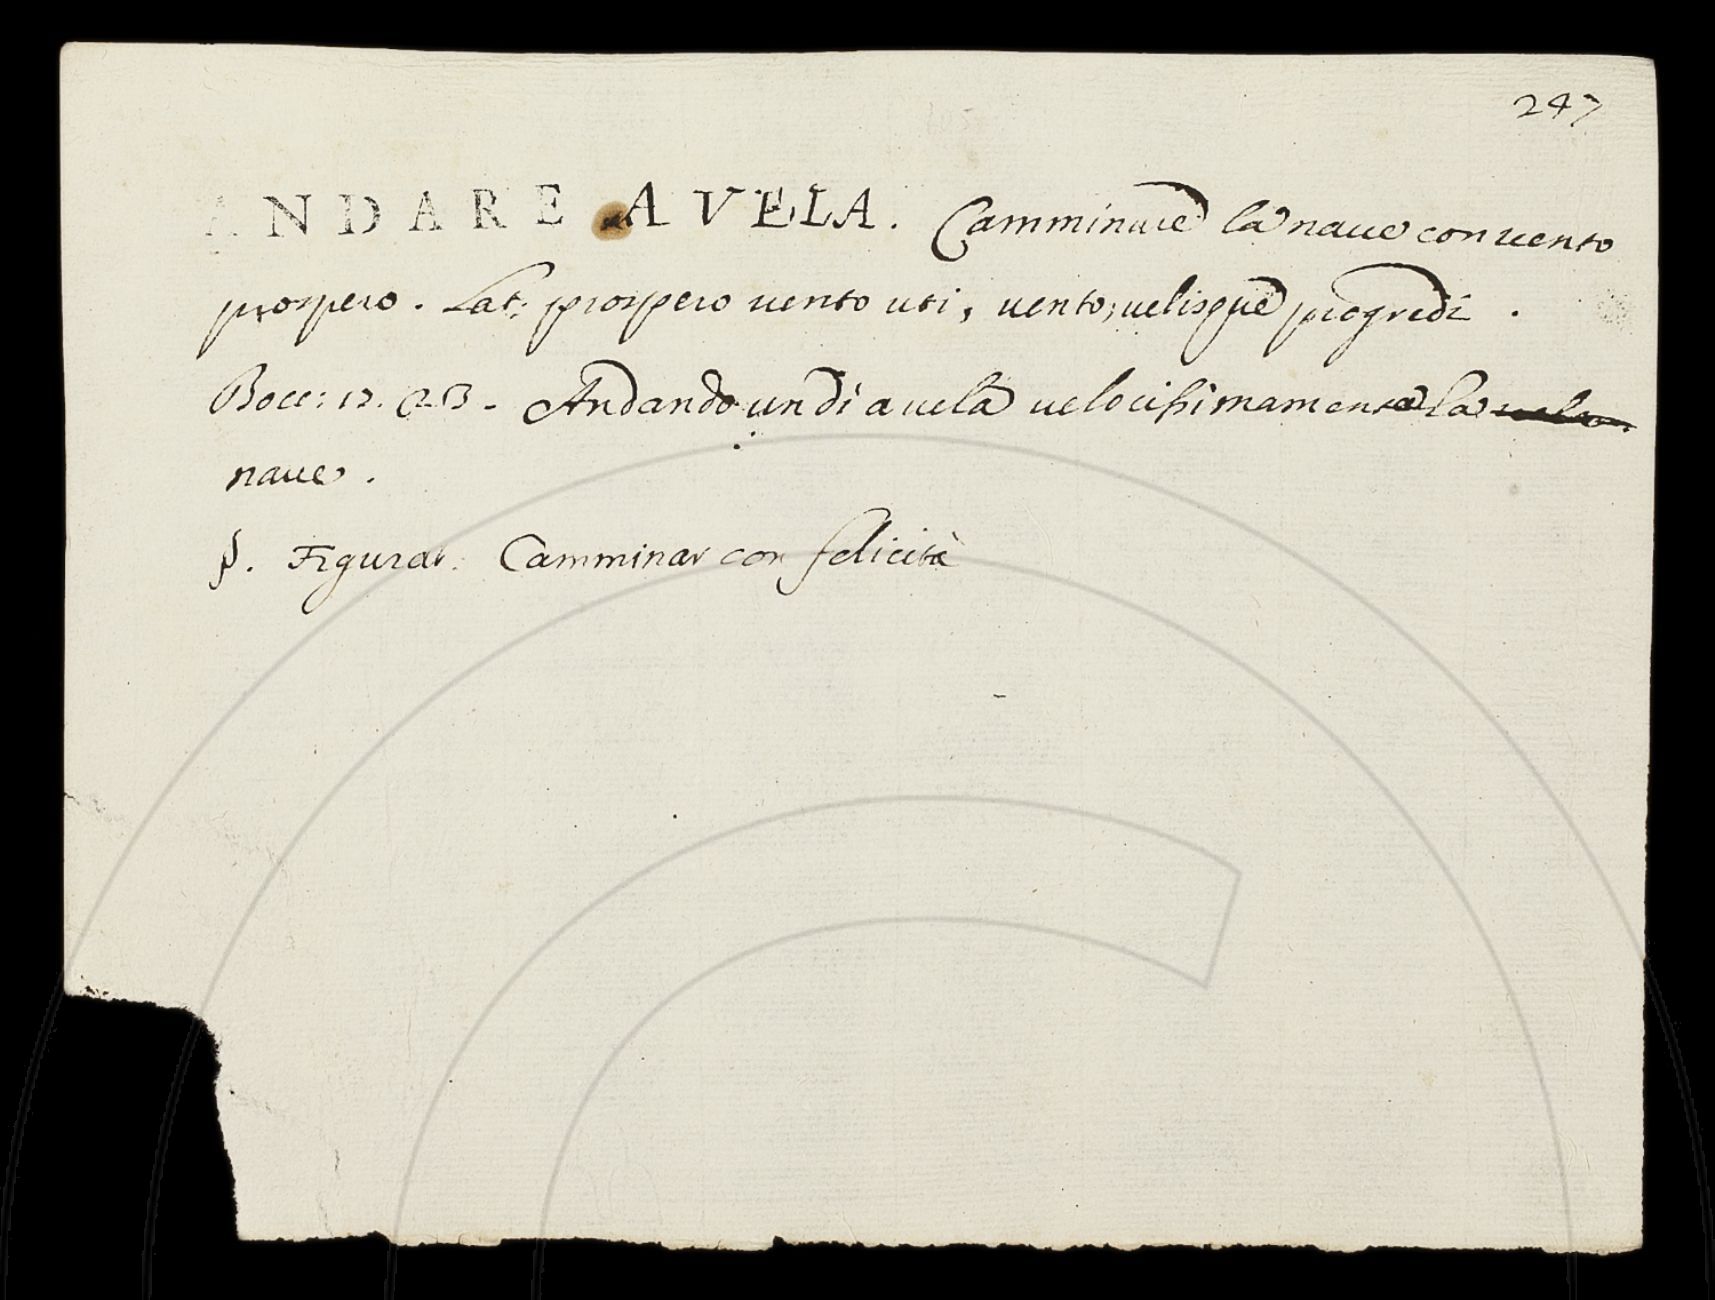 247
ANDARE A VELA. Camminare la naue con uento
prospero. Lat: prospero uento uti, uento, uelisque progredi.
Bocc: 17. Andando un dì a uela uelocissimamente la
naue.
§. Figurat. Camminar con felicità